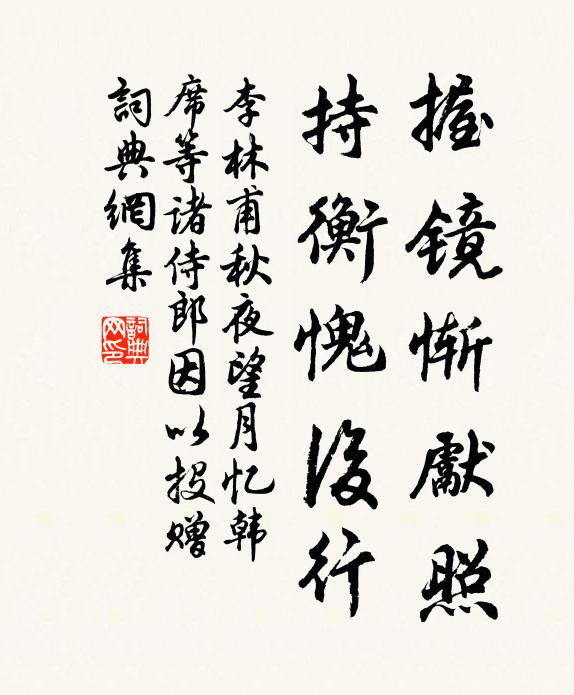 握镜惭獻照
持衡愧後行
李林甫秋夜望月忆韩
席等诸侍郎因以投赠
詞典網集
詞典网印